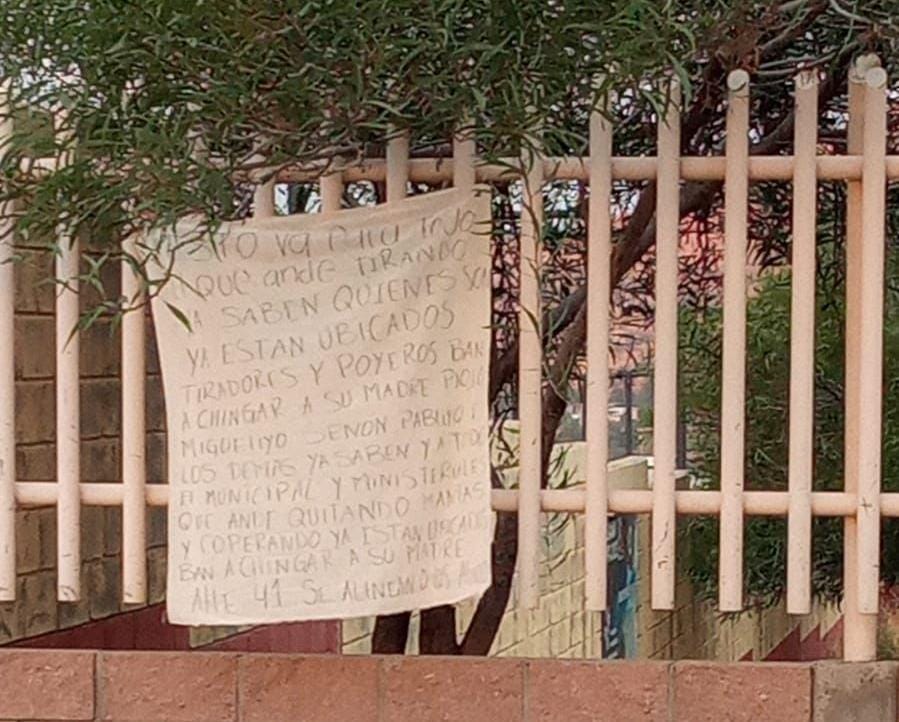 va
QUE ande TIRANDO
SABEN QUIENES SON
YA ESTAN UBICADOS
TIRADORES Y POYEROS BAN
A CHINGAR A SU MADRE
MIGUELIYO PABLITO
LOS DEMAS YA SABEN Y A TODO
EL MUNICIPAL Y MINISTERULES
QUE ANDE QUITANDO MANTAS
Y COPERANDO YA ESTAN UBICADOS
BAN A CHINGAR A SU MADRE
41 SE ALINEAN